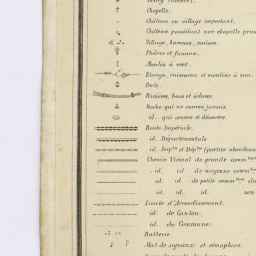 Chapelle.
Château ou village important.
Château possédant une chapelle
Village, hameau, maison.
Phares et fanaux.
Moulin à vent.
Etangs, ruisseaux et moulins à eau.
Puits.
Rivière, bacs et écluse.
Roche qui ne couvre jamais
id. qui couvre et découvre.
Route Impériale.
id. Départementale
id. Imple et Déple (parties
Chemin Vicinal de grande common
id. id. de moyenne
id. id. de petite
id. id. id. non
Limite d'Arrondissement.
id. de Canton.
id. de Commune.
Batterie.
Mât de signaux et sémaphore.